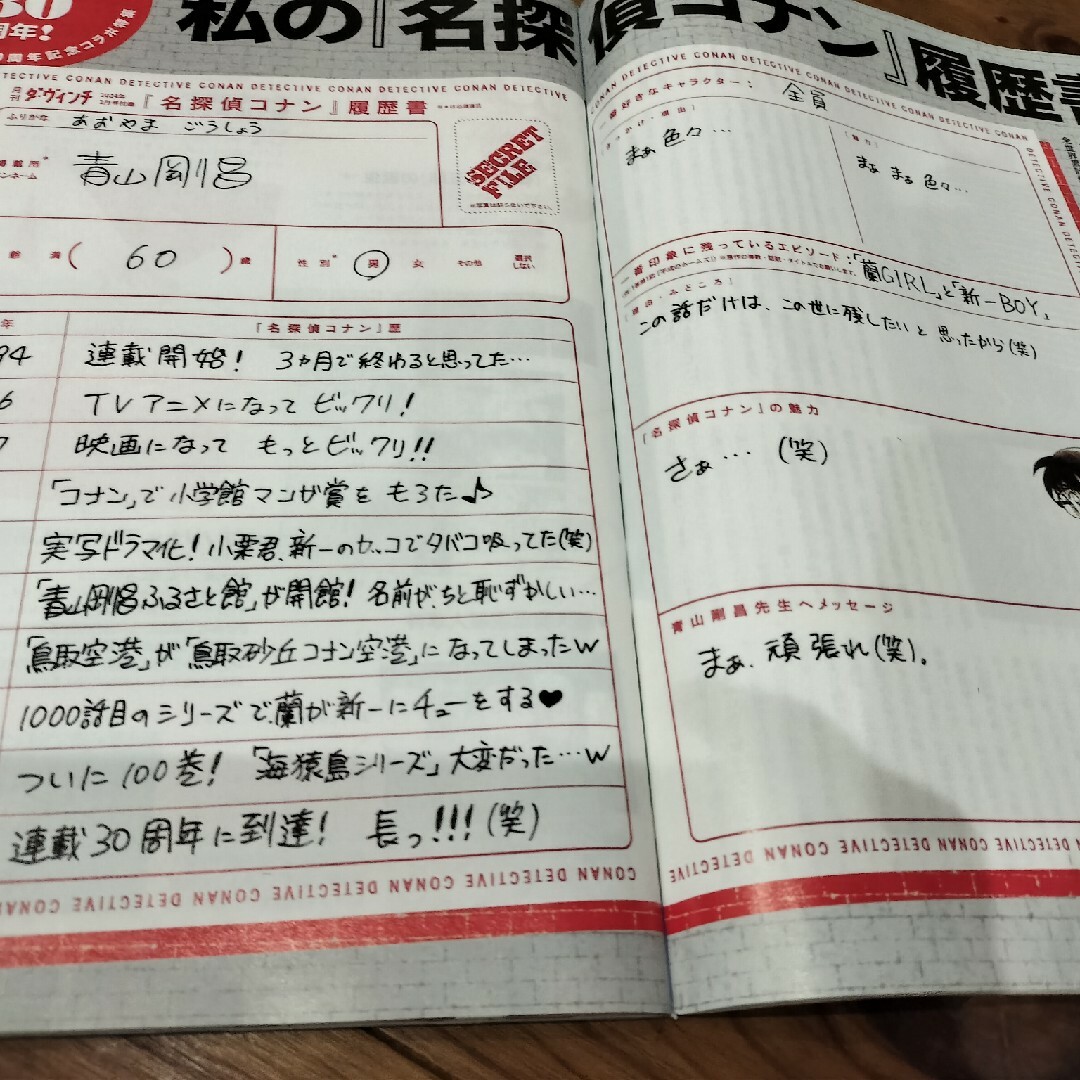 30
周年!
周年記念コラボ特集
私の『名探偵コナン』履歴書
DETECTIVE CONAN DETECTIVE CONAN DETECTIVE CONAN DETECTIVE CONAN DETECTIVE
月刊 ダ・ヴィンチ 『名探偵コナン』履歴書
ふりがな あおやま ごうしょう
青山剛昌
SECRET FILE
満 ( 60 ) 歳
性別* 男 女 その他 選択しない
年 『名探偵コナン』歴
94 連載開始! 3ヵ月で終わると思ってた…
6 TVアニメになって ビックリ!
7 映画になって もっとビックリ!!
「コナン」で小学館マンガ賞を もろた♪
実写ドラマ化! 小栗君、新一のカッコでタバコ吸ってた(笑)
「青山剛昌ふるさと館」が開館! 名前が、ちと恥ずかしい…
「鳥取空港」が「鳥取砂丘コナン空港」になってしまったw
1000話目のシリーズで、蘭が新一にチューをする♥
ついに100巻! 「海猿島シリーズ」大変だった…w
連載30周年に到達! 長っ!!!(笑)
CONAN DETECTIVE CONAN DETECTIVE CONAN DETECTIVE CONAN DETECTIVE CONAN
CONAN DETECTIVE CONAN DETECTIVE CONAN DETECTIVE CONAN
好きなキャラクター: 全員
まぁ色々…
まぁ まぁ 色々…
一番印象に残っているエピソード:「蘭GIRL」と「新一BOY」
理由・みどころ
この話だけは、この世に残したいと思ったから(笑)
『名探偵コナン』の魅力
さぁ… (笑)
青山剛昌先生へメッセージ
まぁ、頑張れ(笑)。
CONAN DETECTIVE CONAN DETECTIVE CONAN DETECTIVE CONAN DETECTIVE